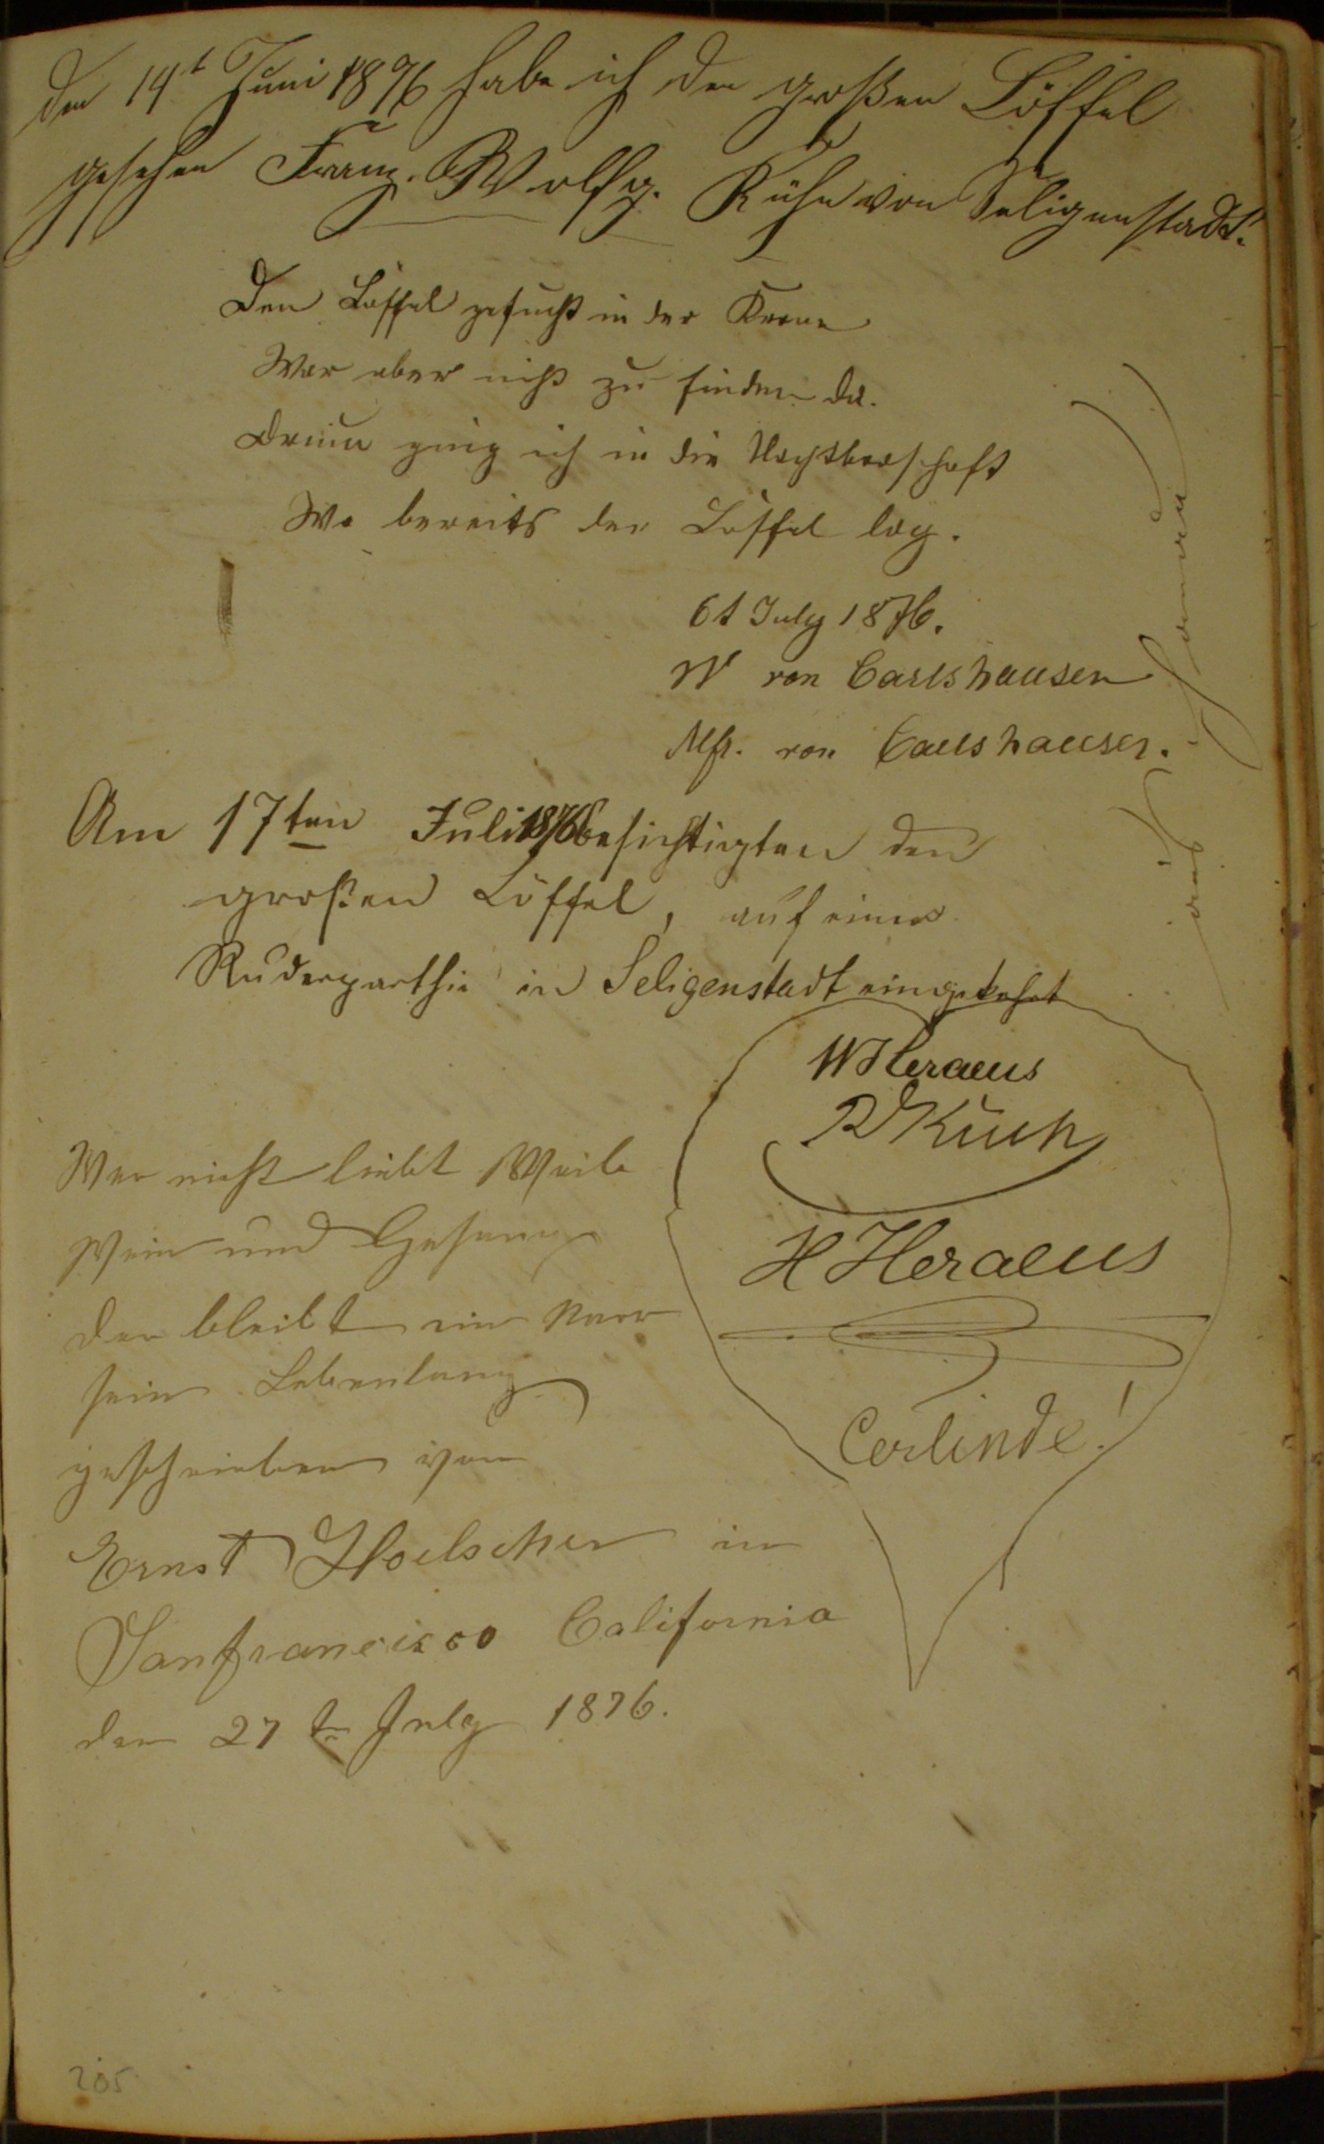 den 14t Juni 1876 habe ich den großen Löffel
gesehen Franz. Wolfg. Kühn von Seligenstadt.
Den Löffel gesucht in der Krone
War aber nicht zu finden da.
Drum ging ich in die Nachtbarschaft
Wo bereits der Löffel lag.
6t July 1876.
W von Carlshausen
Alfr. von Carlshausen.
aus
Am 17ten Juli 1876 besichtigten den
großen Löffel, auf einer
Ruderparthie in Seligenstadt eingekehrt
W Heraeus
R Küch
H Heraeus
Cerlinde!
Wer nicht liebt Weib
Wein und Gesang
der bleibt ein Narr
sein Lebenlang
geschrieben von
Ernst Hoelscher in
Sanfrancisco California
den 27tn July 1876.
205